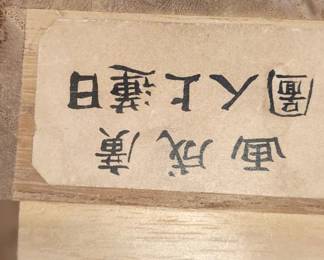 日蓮上人圖
廣成画